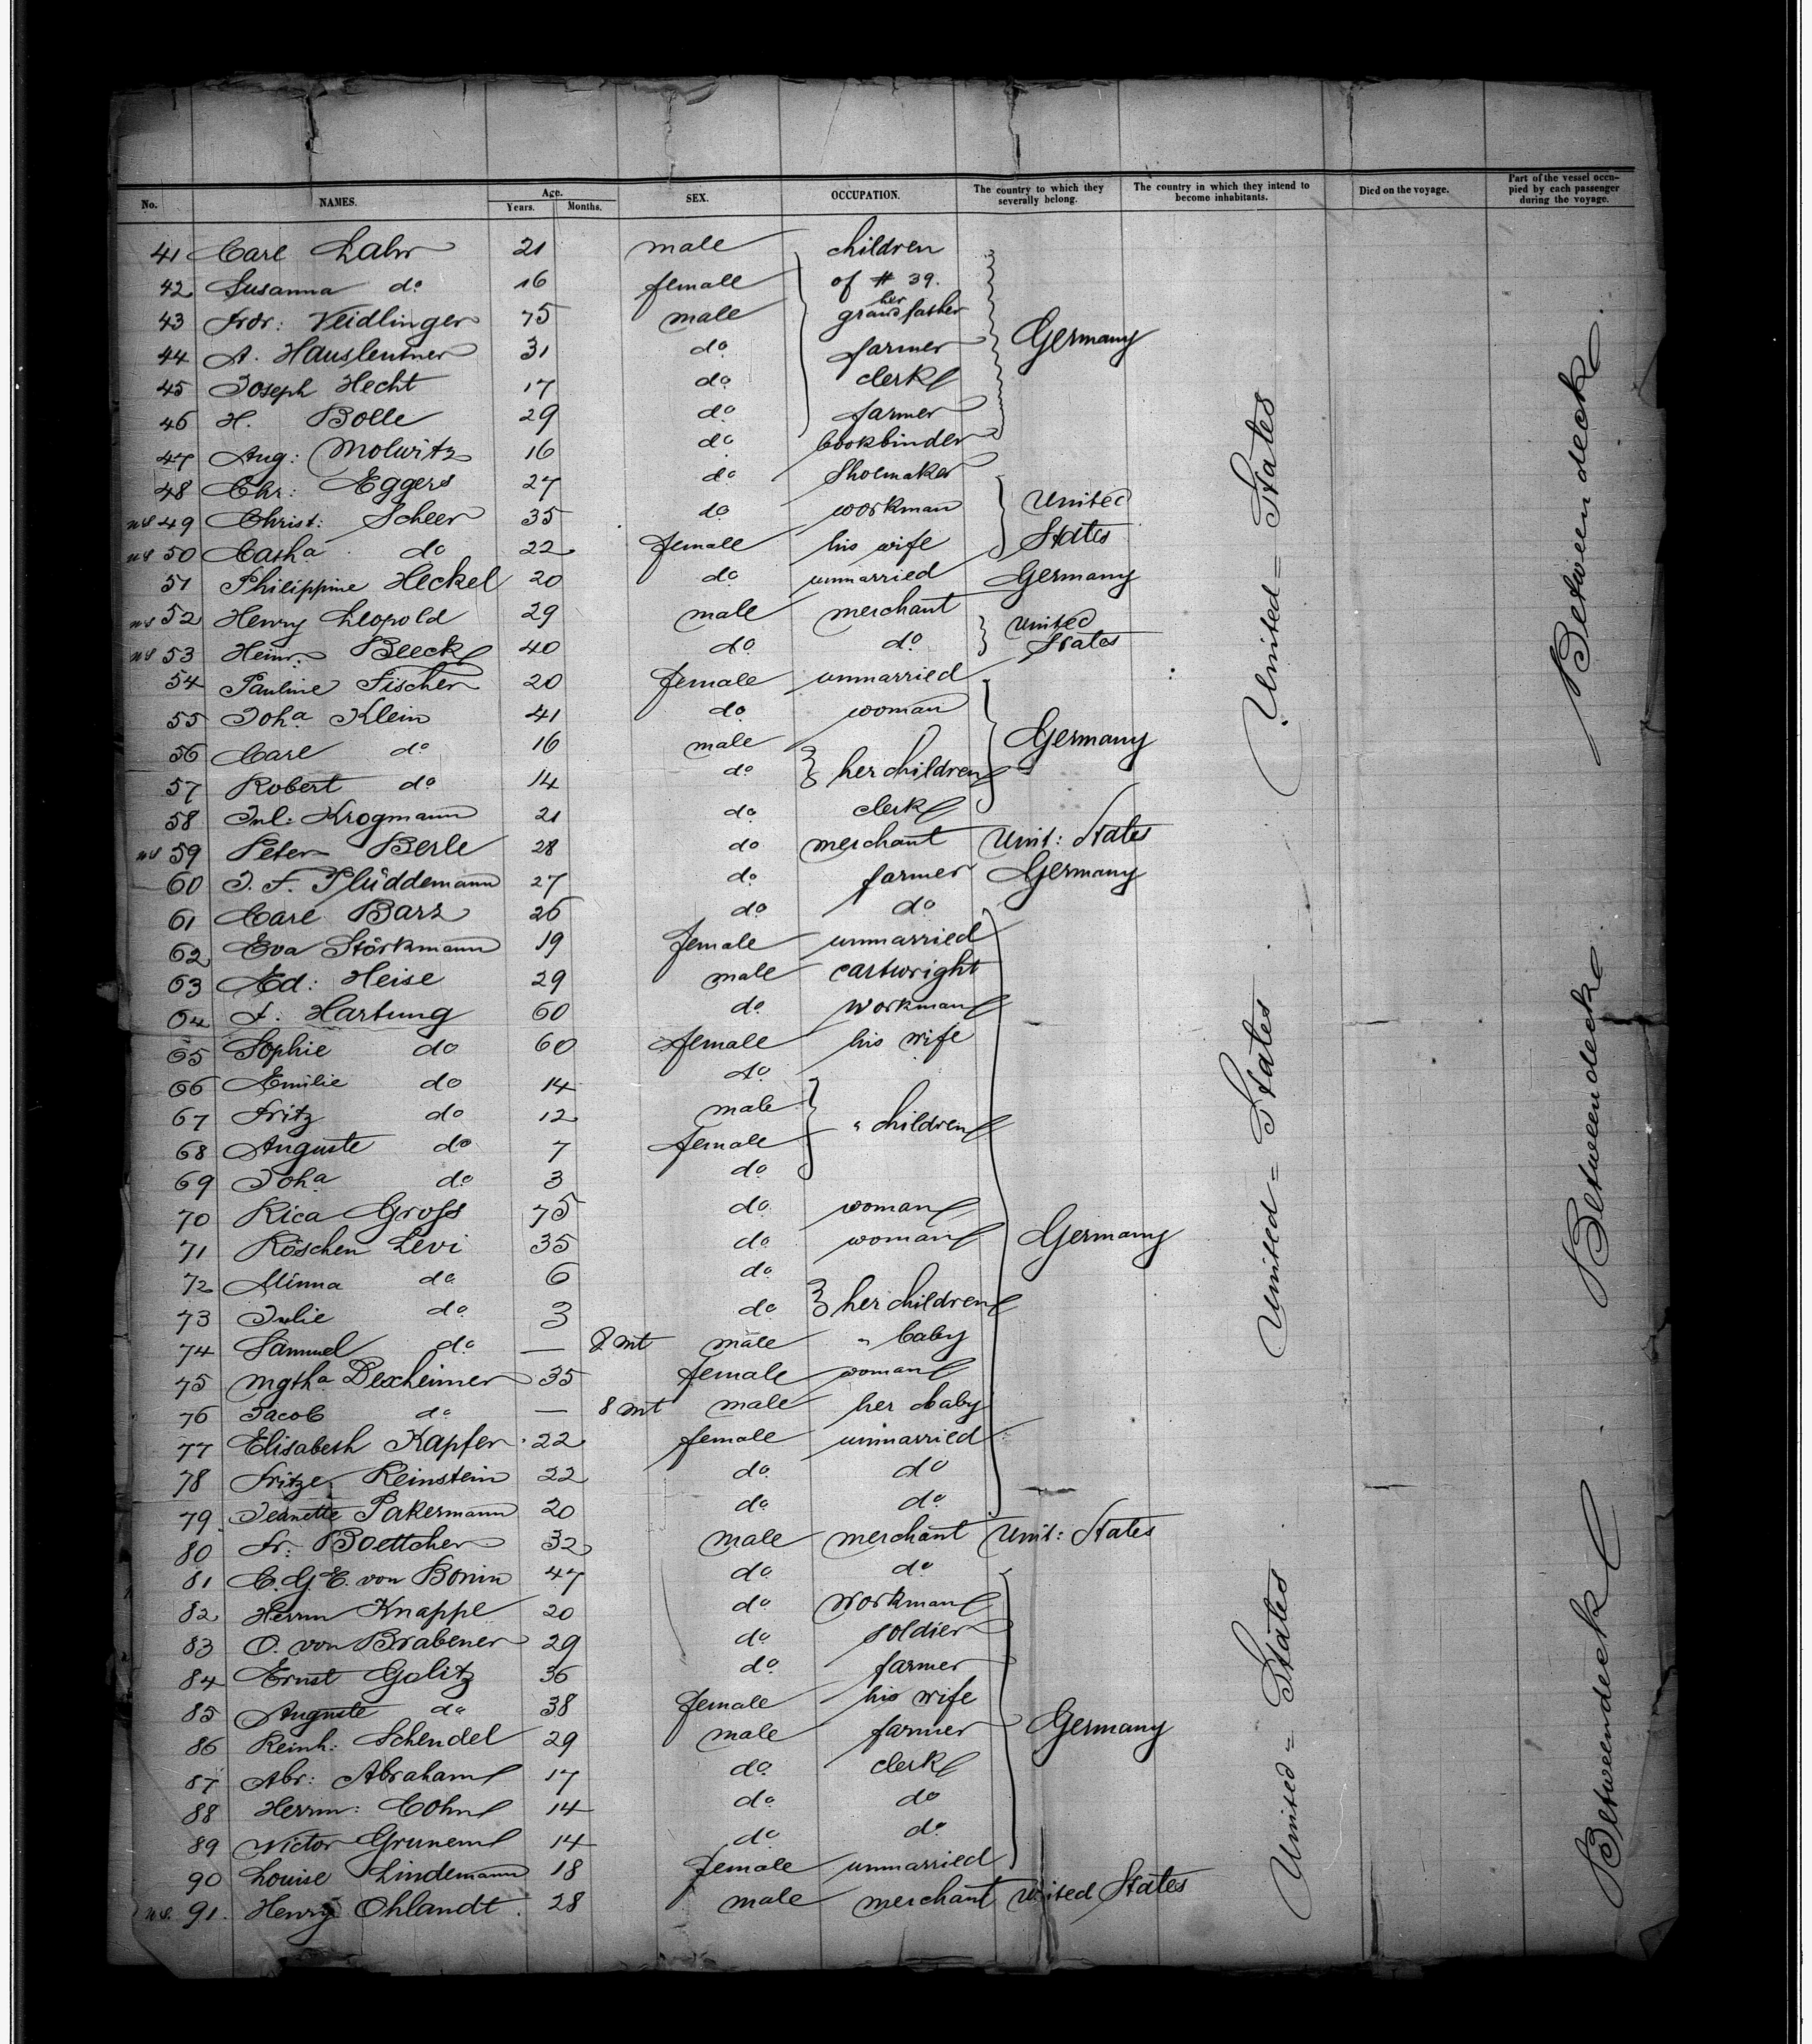 No. NAMES. Age. Years. Months. SEX. OCCUPATION. The country to which they severally belong. The country in which they intend to become inhabitants. Died on the voyage. Part of the vessel occupied by each passenger during the voyage.
41 Carl Lahr 21 male children
42 Susanna do 16 female of # 39.
43 Frdr: Veidlinger 75 male her grandfather
44 A. Hauslentner 31 do farmer Germany
45 Joseph Hecht 17 do clerk
46 H. Bolle 29 do farmer
47 Aug: Molwitz 16 do bookbinder
48 Chr: Eggers 27 do Shoemaker
49 Christ: Scheer 35 do workman United
50 Catha do 22 female his wife States
51 Philippine Heckel 20 do unmarried Germany
52 Henry Leopold 29 male merchant United
53 Heinr. Beeck 40 do do States
54 Pauline Fischer 20 female unmarried
55 Joha Klein 41 do woman
56 Carl do 16 male Germany
57 Robert do 14 do her children
58 Jul: Krogmann 21 do clerk
59 Peter Berle 28 do merchant Unit: States
60 J. F. Plüddemann 27 do farmer Germany
61 Carl Barz 26 do do
62 Eva Störkmann 19 female unmarried
63 Ed: Heise 29 male cartwright
64 F. Hartung 60 do workman
65 Sophie do 60 female his wife
66 Emilie do 14 do
67 Fritz do 12 male " children
68 Auguste do 7 female
69 Joha do 3 do
70 Rica Gross 75 do woman
71 Röschen Levi 35 do woman Germany
72 Minna do 6 do
73 Julie do 3 do her children
74 Samuel do — 8 mt male " baby
75 Mgtha Dexheimer 35 female woman
76 Jacob do — 8 mt male her baby
77 Elisabeth Kapfer 22 female unmarried
78 Fritze Reinstein 22 do do
79 Jeanette Pakermann 20 do do
80 Fr: Boettcher 32 male merchant Unit: States
81 C. G. E. von Bonin 47 do do
82 Herrm Knappe 20 do workman
83 O. von Brabener 29 do soldier
84 Ernst Golitz 36 do farmer
85 Auguste do 38 female his wife
86 Reinh: Schendel 29 male farmer Germany
87 Abr: Abraham 17 do clerk
88 Herrm: Cohn 14 do do
89 Victor Grunem 14 do do
90 Louise Lindemann 18 female unmarried
91. Henry Ohlandt. 28 male merchant United States
United = States
United = States
United = States
Betweendeck.
Betweendeck.
Betweendeck